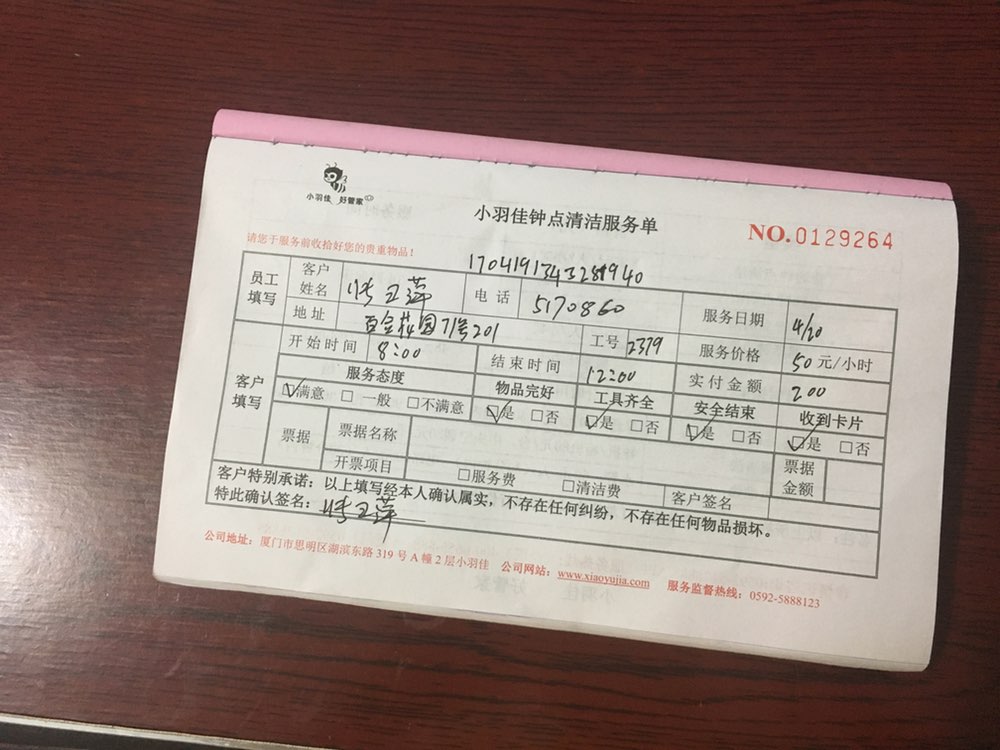 小羽佳 好管家
小羽佳钟点清洁服务单
NO.0129264
请您于服务前收拾好您的贵重物品！
员工填写 客户姓名 电话 5170860 服务日期 4/20
地址 百金花园71号201 工号 2379 服务价格 50元/小时
客户填写 开始时间 8:00 结束时间 12:00 实付金额 200
服务态度 物品完好 工具齐全 安全结束 收到卡片
☑满意 □一般 □不满意 ☑是 □否 ☑是 □否 ☑是 □否 ☑是 □否
票据 票据名称 票据金额
开票项目 □服务费 □清洁费 客户签名
客户特别承诺：以上填写经本人确认属实，不存在任何纠纷，不存在任何物品损坏。
特此确认签名：
公司地址：厦门市思明区湖滨东路319号A幢2层小羽佳 公司网站：www.xiaoyujia.com 服务监督热线：0592-5888123